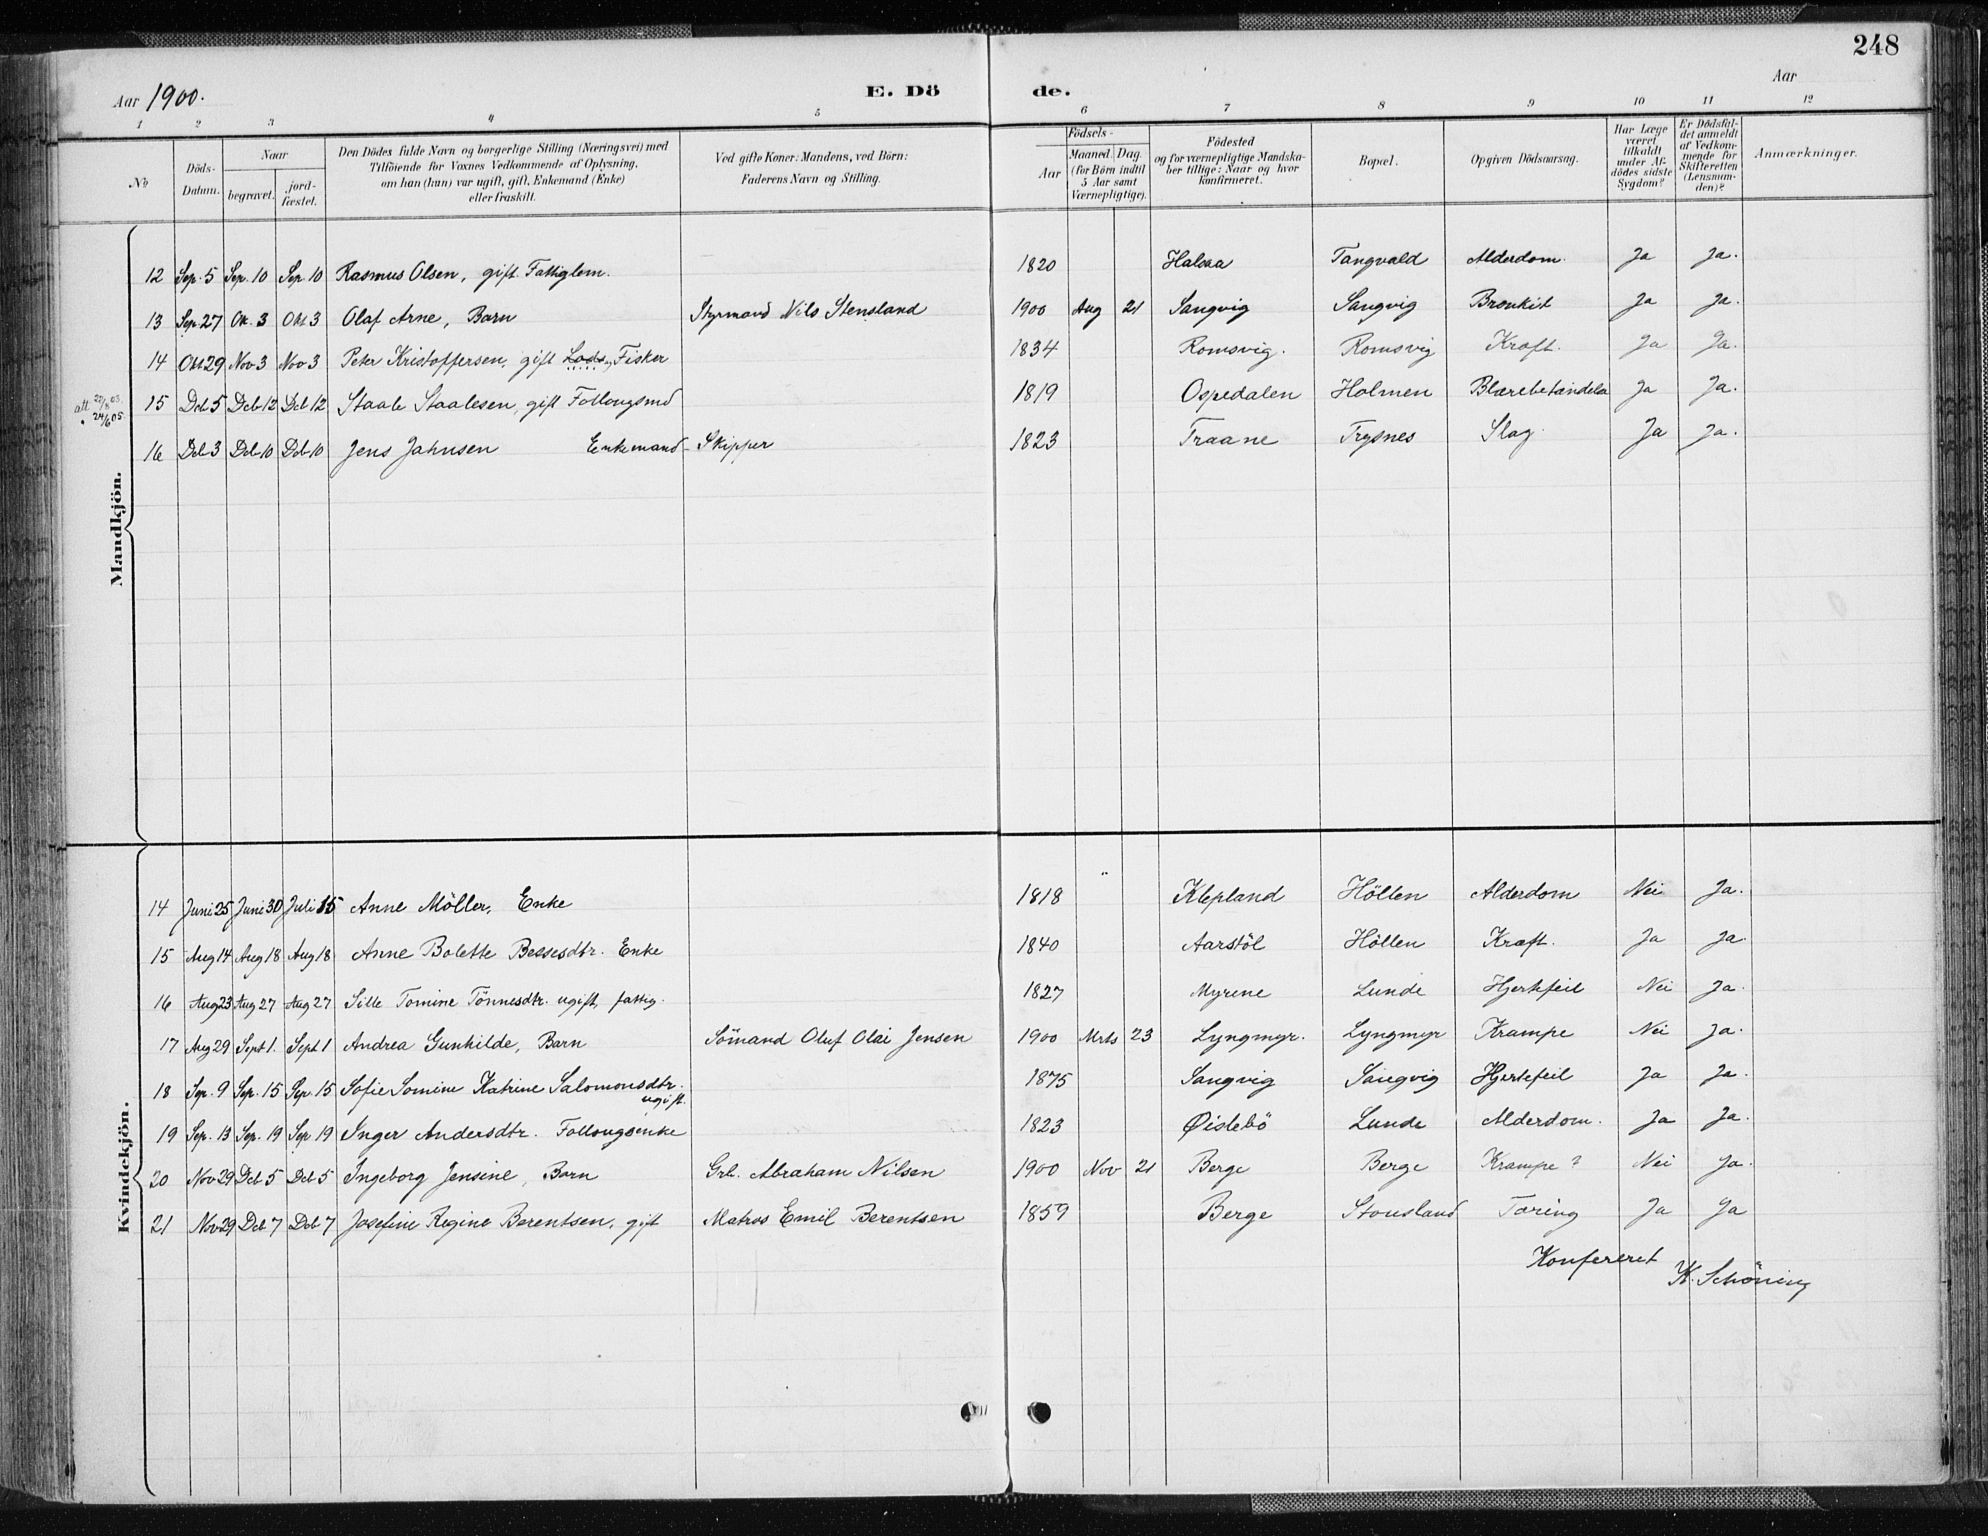 248
Aar 1900. E. Dö de. Aar
1 2 3 4 5 6 7 8 9 10 11 12
No Döds-Datum. Naar begravet. jord-fæstet. Den Dödes fulde Navn og borgerlige Stilling (Næringsvei) med Tilföiende for Voxnes Vedkommende af Oplysning, om han (hun) var ugift, gift, Enkemand (Enke) eller fraskilt. Ved gifte Koner: Mandens, ved Börn: Faderens Navn og Stilling. Födsels- Aar Maaned. Dag. (for Börn indtil 5 Aar samt Værnepligtige). Födested og for værnepligtige Mandskaber tillige: Naar og hvor konfirmeret. Bopæl. Opgiven Dödsaarsag. Har Læge været tilkaldt under Afdödes sidste Sygdom? Er Dödsfaldet anmeldt af Vedkommende for Skifteretten (Lensmanden)? Anmærkninger.
Mandkjön.
12 Sep. 5 Sep. 10 Sep 10 Rasmus Olsen, gift Fattiglem. 1820 Halsaa Tangvald Alderdom. Ja Ja.
13 Sep. 27 Ok. 3 Okt 3 Olaf Arne, Barn Styrmand Nils Stensland 1900 Aug 21 Sangvig Sangvig Bronkit Ja Ja.
14 Okt 29 Nov 3 Nov 3 Peter Kristoffersen, gift Lods, Fisker 1834 Romsvig. Romsvig Kræft. Ja Ja.
att 27/8 03. 24/6 05 15 Deb 5 Deb 12 Deb 12 Staale Staalesen, gift Follougsmd 1819 Ospedalen Holmen Blærebetændelse Ja Ja.
16 Deb 3 Deb 10 Deb 10 Jens Jahnsen Enkemand - Skipper 1823 Traane Trysnes Slag. Ja Ja.
Kvindekjön.
14 Juni 25 Juni 30 Juli 15 Anne Möller, Enke 1818 Klepland Höllen Alderdom Nei Ja.
15 Aug 14 Aug 18 Aug 18 Anne Bolette Bessesdtr. Enke 1840 Aarstöl Höllen Kræft. Ja Ja
16 Aug 23 Aug 27 Aug 27 Sille Tomine Tönnesdtr. ugift, fattig. 1827 Myrene Lunde Hjertefeil Nei Ja.
17 Aug 29 Sept 1. Sept 1 Andrea Gunhilde, Barn Sömand Oluf Olai Jensen 1900 Mrts 23 Lyngmyr. Lyngmyr Krampe Nei Ja.
18 Sep. 9 Sep. 15 Sep. 15 Sofie Tomine Katrine Salomonsdtr. ugift. 1875 Sangvig Sangvig Hjertefeil Ja Ja.
19 Sep. 13 Sep. 19 Sep 19 Inger Andersdtr. Follougsenke 1823 Øislebö Lunde Alderdom. Ja Ja.
20 Nov 29 Deb 5 Deb 5 Ingeborg Jensine, Barn Grb. Abraham Nilsen 1900 Nov 21 Berge Berge Krampe? Nei Ja.
21 Nov 29 Deb 7 Deb 7 Josefine Regine Berentsen, gift Matros Emil Berentsen 1859 Berge Stousland Tæring Ja Ja
Konfereret
K. Schöning